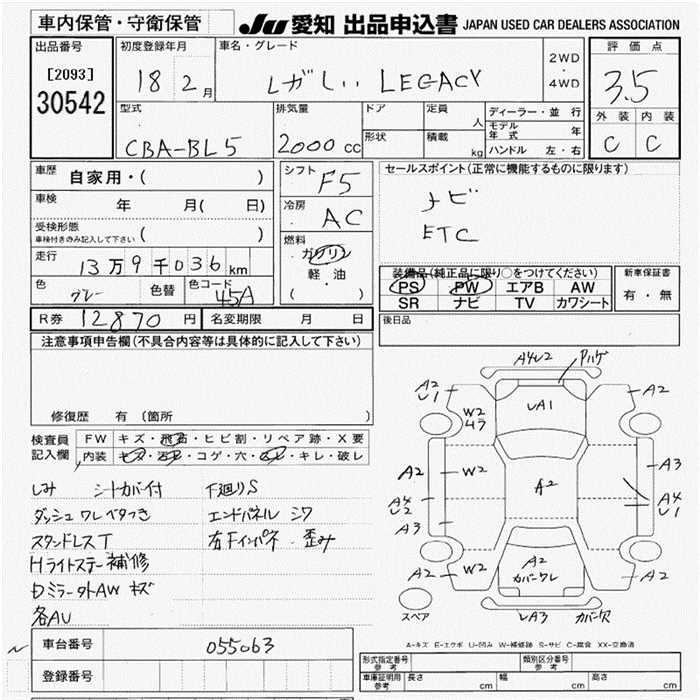 車内保管・守衛保管
JU 愛知 出品申込書 JAPAN USED CAR DEALERS ASSOCIATION
出品番号
[2093]
30542
初度登録年月
18 2月
車名・グレード
レガしぃ LEGACY
2WD
・
4WD
評価点
3.5
外装 内装
C C
型式
CBA-BL5
排気量
2000 cc
ドア
形状
定員 人
積載 kg
ディーラー・並行
モデル年式 年
ハンドル 左・右
車歴 自家用・( )
車検 年 月( 日)
受検形態
車検付きのみ記入して下さい ( )
走行
13万9千036km
色 グレー 色替 色コード 45A
シフト
F5
冷房
AC
燃料
ガソリン
軽・油
( )
セールスポイント(正常に機能するものに限ります)
ナビ
ETC
装備品(純正品に限り○をつけてください)
PS PW エアB AW
SR ナビ TV カワシート
新車保証書
有・無
R券 12870円 名変期限 月 日
後日品
注意事項申告欄(不具合内容等は具体的に記入して下さい)
修復歴 有 〔箇所 〕
検査員
記入欄
FW キズ・飛石・ヒビ割・リペア跡・X要
内装 キズ・汚レ・コゲ・穴・スレ・キレ・破レ
しみ シートカバー付 下廻りS
ダッシュワレベタつき エンドパネル シワ
スタンドレスT 右Fインパネ 歪み
Hライトステー補修
Dミラー外AW キズ
各AU
A4U2 Pハゲ
A2
U1
W2
ムラ
UA1
A2
A2 W2
A3
A4
U2
A2
A4
U1
A3
A2 W2
A2
カバーワレ
A2
スペア
UA3 カバー欠
A-キズ E-エクボ U-凹み W-補修跡 S-サビ C-腐食 XX-交換済
車台番号 055063
登録番号
形式指定番号
参考
類別区分番号
参考
車庫証明用
参考
長さ cm 幅 cm 高さ cm